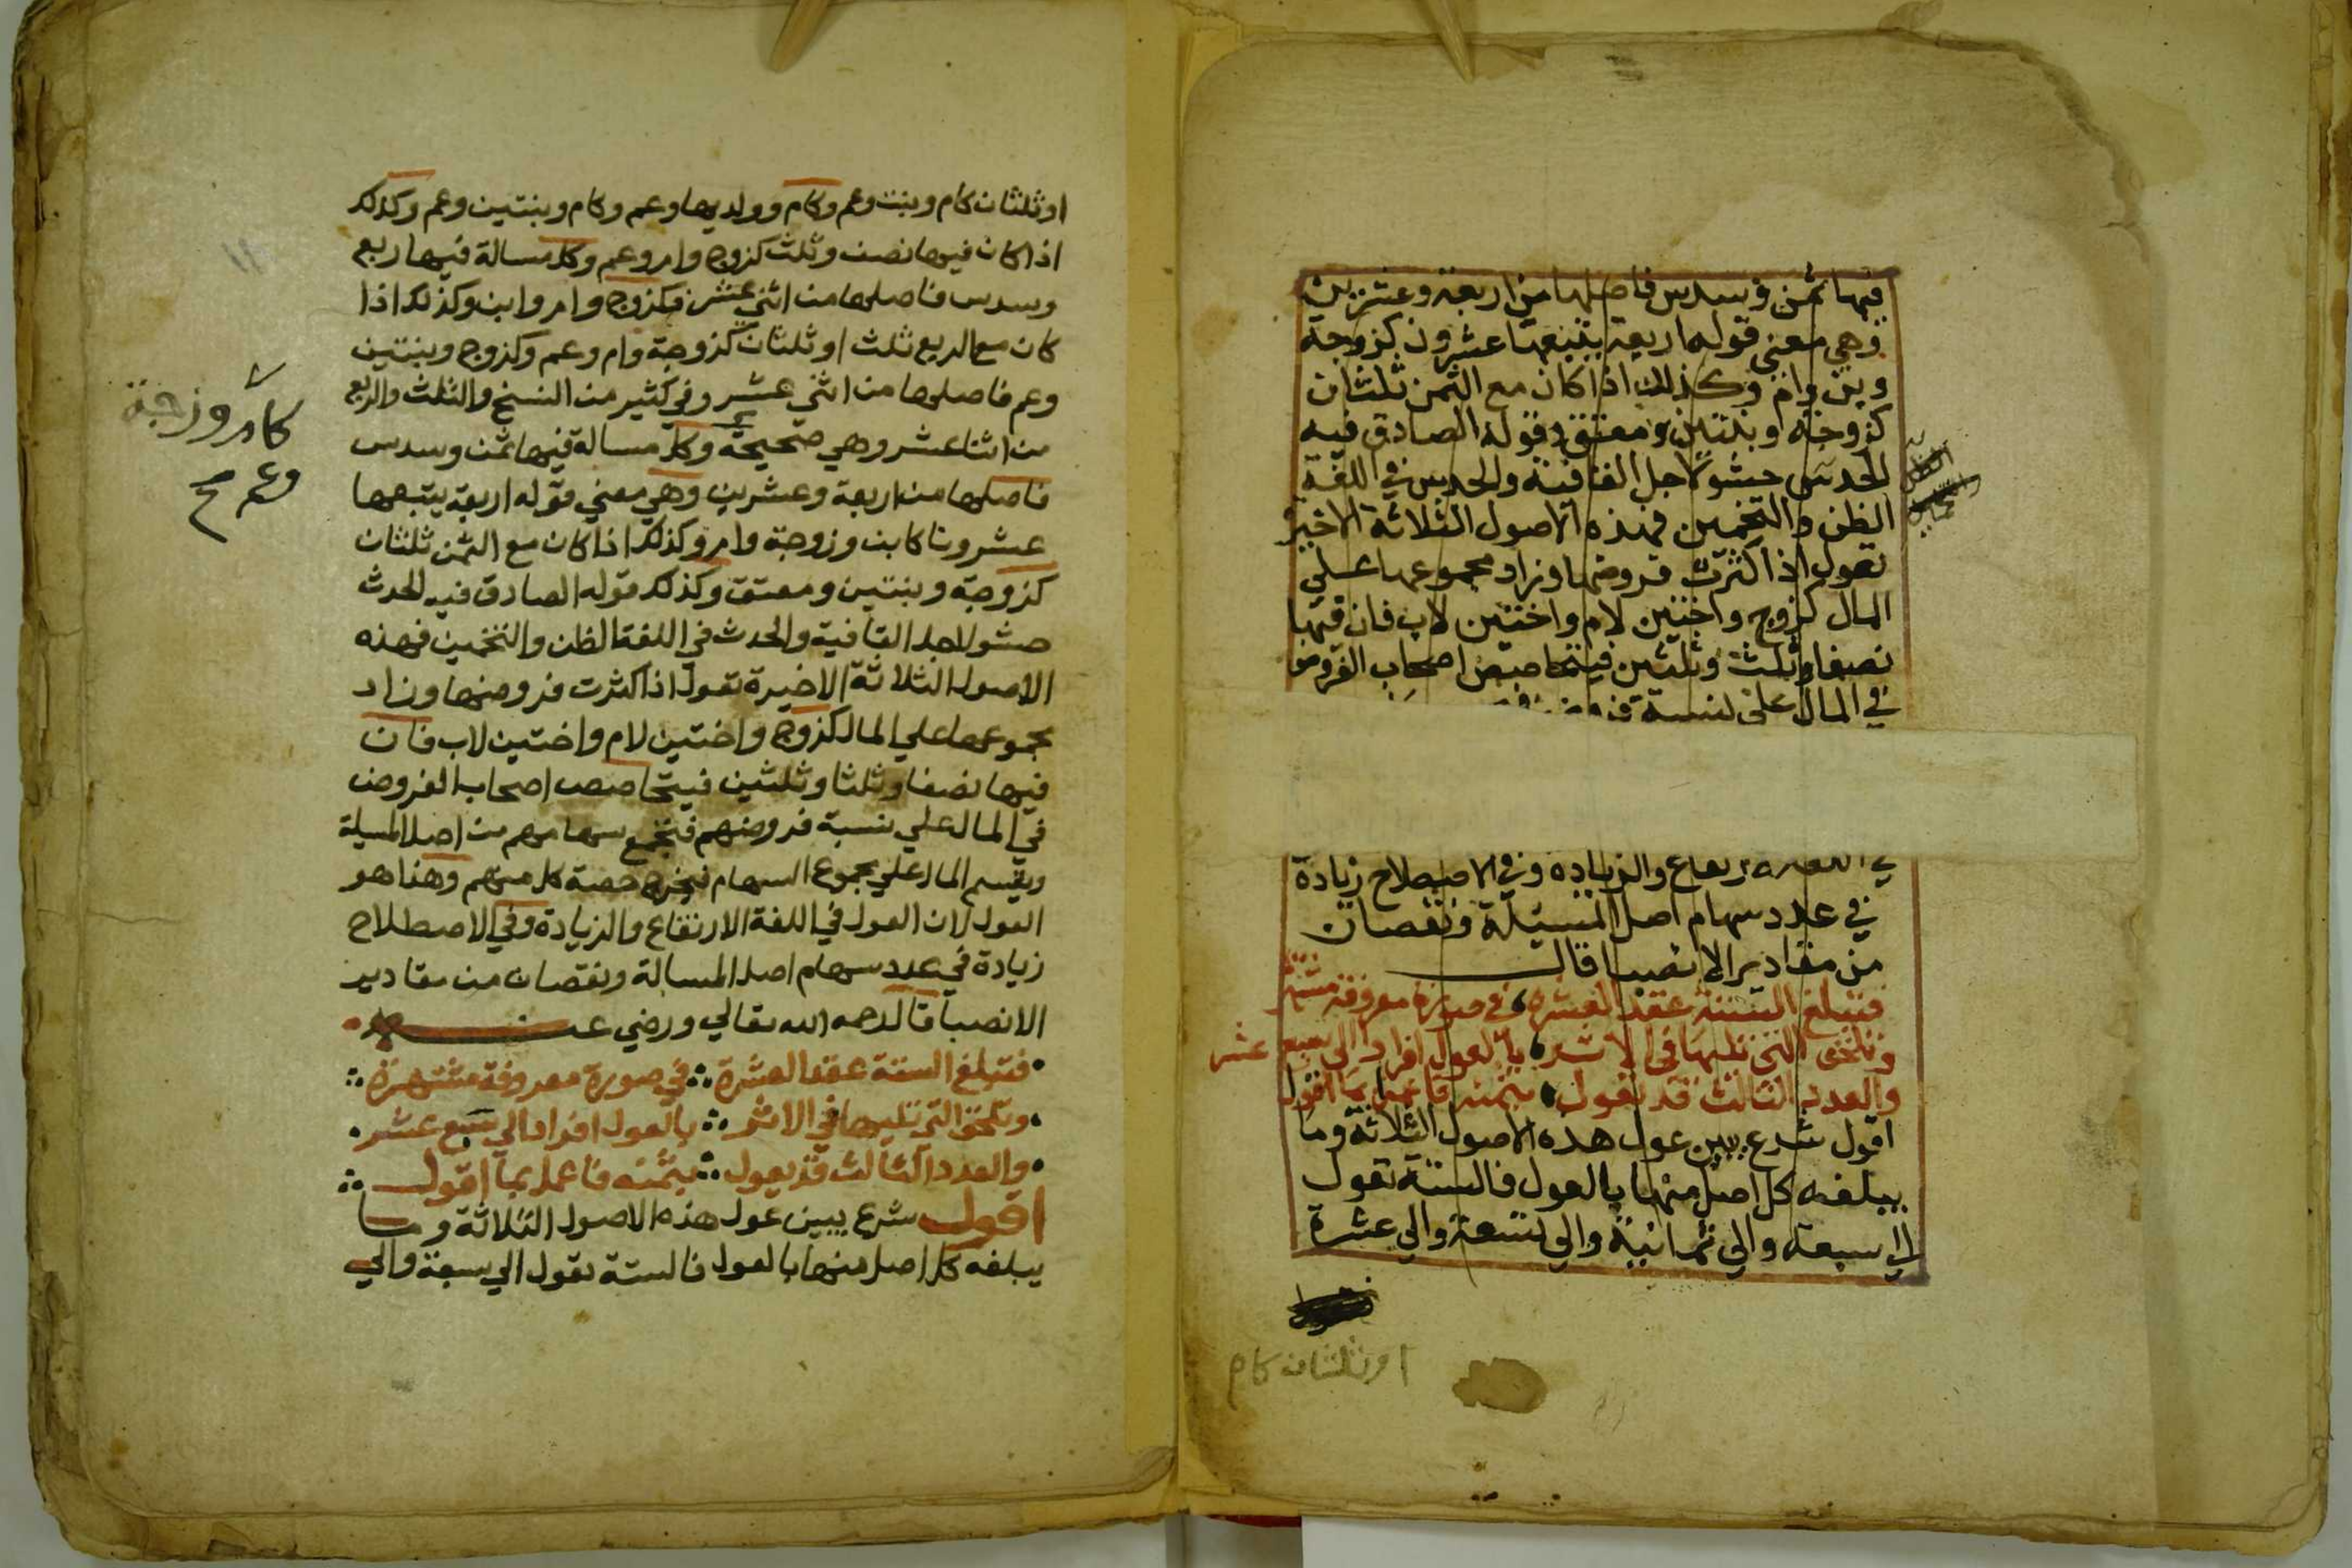 فيها ثمن وسدس فاصلها من اربعة وعشرين
وهي معنى قوله اربعة يتبعها عشرون كزوجة
وبن وام وكذلك اذا كان مع الثمن ثلثان
كزوجة وبنتين ومعتق وقوله الصادق فيه
الحدس حشو لاجل القافية والحدس في اللغة
الظن والتخمين فهذه الاصول الثلاثة الاخيرة
تعول اذا كثرت فروضها وزاد مجموعها على
المال كزوج واختين لام واختين لاب فان فيها
نصفا وثلث وثلثين فيتحاصص اصحاب الفروض
في المال على نسبة
والزيادة وفي الاصطلاح زيادة
في عدد سهام اصل المسيلة ونقصان
من مقادير الانصبا قال
فتبلغ الستة عقد العشرة في صورة معروفة مشتهرة
وتلحق التي تليها في الاثر بالعول افرادا الى سبع عشر
والعدد الثالث قد يعول بثمنه فاعمل بما اقول
اقول شرع يبين عول هذه الاصول الثلاثة وما
يبلغه كل اصل منها بالعول فالستة تعول
الي سبعة والي ثمانية والي تسعة والي عشرة
اوثلثان كام
اوثلثان كام وبنت وعم وكام وولديها وعم وكام وبنتين وعم وكذلك
اذا كان فيها نصف وثلث كزوج وام وعم وكل مسالة فيها ربع
وسدس فاصلها من اثني عشر فكزوج وام وابن وكذلك اذا
كان مع الربع ثلث او ثلثان كزوجة وام وعم وكزوج وبنتين
وعم فاصلها من اثني عشر وفي كثير من النسخ والثلث والربع
من اثنا عشر وهي صحيحة وكل مسالة فيها ثمن وسدس
فاصلها من اربعة وعشرين وهي معني قوله اربعة يتبعها
عشرونا كابن وزوجة وام وكذلك اذا كان مع الثمن ثلثان
كزوجة وبنتين ومعتق وكذلك قوله الصادق فيه الحدث
حشو لاجل القافية والحدث في اللغة الظن والتخمين فهذه
الاصول الثلاثة الاخيرة تعول اذا كثرت فروضها وزاد
مجموعها علي المال كزوج واختين لام واختين لاب فان
فيها نصفا وثلثا وثلثين فيتحاصص اصحاب الفروض
في المال علي نسبة فروضهم فتجمع سهامهم من اصل المسيلة
ويقسم المال علي مجموع السهام فيخرج حصة كل منهم وهذا هو
العول لان العول في اللغة الارتفاع والزيادة وفي الاصطلاح
زيادة في عدد سهام اصل المسالة ونقصان من مقادير
الانصبا قال رحمه الله تعالي ورضي عنه
فتبلغ الستة عقد العشرة في صورة معروفة مشتهرة
وتلحق التي تليها في الاثر بالعول افرادا الي سبع عشر
والعدد الثالث قد يعول بثمنه فاعمل بما اقول
اقول شرع يبين عول هذه الاصول الثلاثة وما
يبلغه كل اصل منها بالعول فالستة تعول الي سبعة والي
كام وزوجة
وعم صح